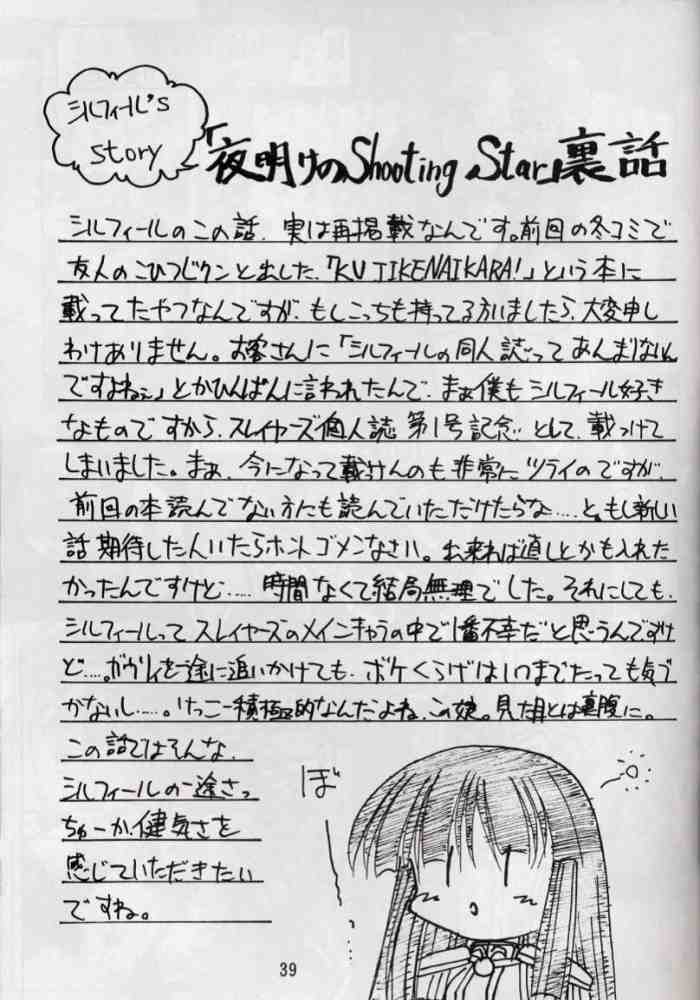 シルフィール's
story
「夜明けのShooting Star」裏話
シルフィールのこの話、実は再掲載なんです。前回の冬コミで
友人のこひつじクンと出した、「KUJIKENAIKARA!」という本に
載ってたやつなんですが、もしこっちも持ってる方いましたら、大変申し
わけありません。お客さんに「シルフィールの同人誌ってあんまりないん
ですよねぇ」とかひんぱんに言われたんで、まぁ僕もシルフィール好き
なものですから、スレイヤーズ個人誌 第1号記念 として、載っけて
しまいました。まぁ、今になって載けんのも非常にツライのですが、
前回の本読んでない方にも読んでいただけたらな……と。もし新しい
話期待した人いたらホントゴメンなさい。出来れば直しとかも入れた
かったんですけど……時間なくて結局無理でした。それにしても、
シルフィールってスレイヤーズのメインキャラの中で1番不幸だと思うんですけ
ど……。ガウリィを一途に追いかけても、ボケくらげはいつまでたっても気づ
かないし……。けっこー積極的なんだよね、この娘。見た目とは裏腹に。
この話ではそんな、
シルフィールの一途さっ
ちゅーか、健気さを
感じていただきたい
ですね。
ぽ
39